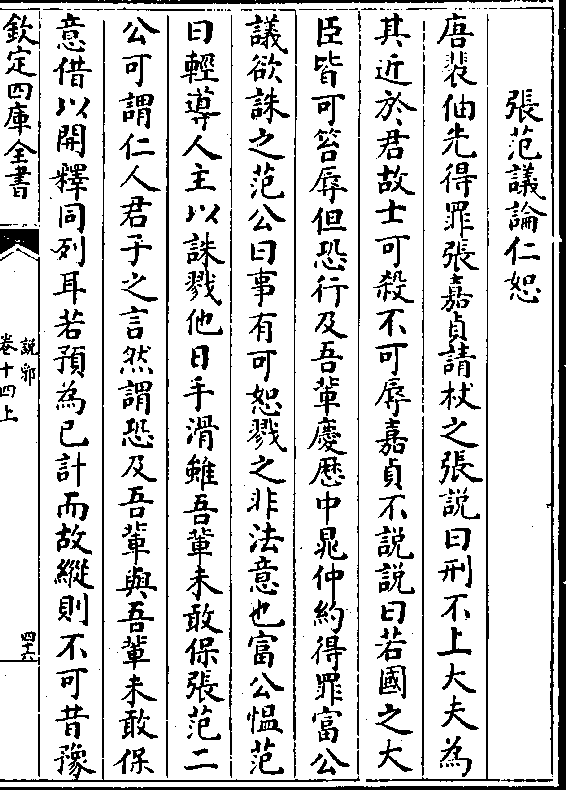 張范議論仁恕
唐裴伷先得罪張嘉貞請杖之張說曰刑不上大夫為
其近於君故士可殺不可辱嘉貞不説説曰若國之大
臣皆可笞辱但恐行及吾輩慶歴中晁仲約得罪富公
議欲誅之范公曰事有可恕戮之非法意也富公愠范
曰輕導人主以誅戮他日手滑雖吾輩未敢保張范二
公可謂仁人君子之言然謂恐及吾輩與吾輩未敢保
意借以開釋同列耳若預為已計而故縱則不可昔豫
欽定四庫全書
說郛
卷十四上
四十六